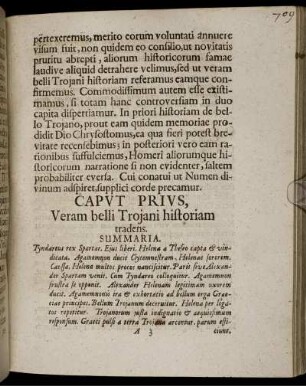 709
pertexeremus, merito eorum voluntati annuere
visum fuit, non quidem eo consilio, ut novitatis
pruritu abrepti, aliorum historicorum famae
laudive aliquid detrahere velimus, sed ut veram
belli Trojani historiam referamus eamque con-
firmemus. Commodissimum autem esse existi-
mamus, si totam hanc controversiam in duo
capita dispertiamur. In priori historiam de bel-
lo Trojano, prout eam quidem memoriae pro-
didit Dio Chrysostomus, ea qua fieri potest bre-
vitate recensebimus; in posteriori vero eam ra-
tionibus suffulciemus, Homeri aliorumque hi-
storicorum narratione si non evidenter, saltem
probabiliter eversa. Cui conatui ut Numen di-
vinum adspiret, supplici corde precamur.
CAPVT PRIVS,
Veram belli Trojani historiam
tradens.
SUMMARIA.
Tyndareus rex Spartae. Ejus liberi. Helena a Theseo capta & vin-
dicata. Agamemnon ducit Clytemnestram, Helenae sororem.
Caussa. Helena multos procos nanciscitur. Paris sive Alexan-
der Spartam venit. Cum Tyndareo colloquitur. Agamemnon
frustra se opponit. Alexander Helenam legitimam uxorem
ducit. Agamemnonis ira & exhortatio ad bellum erga Grae-
ciae principes. Bellum Trojanum decernitur. Helena per lega-
tos repetitur. Trojanorum justa indignatio & aequissimum
responsum. Graeci pulsi a terra Trojana arcentur. parum effi-
A 3
ciunt,